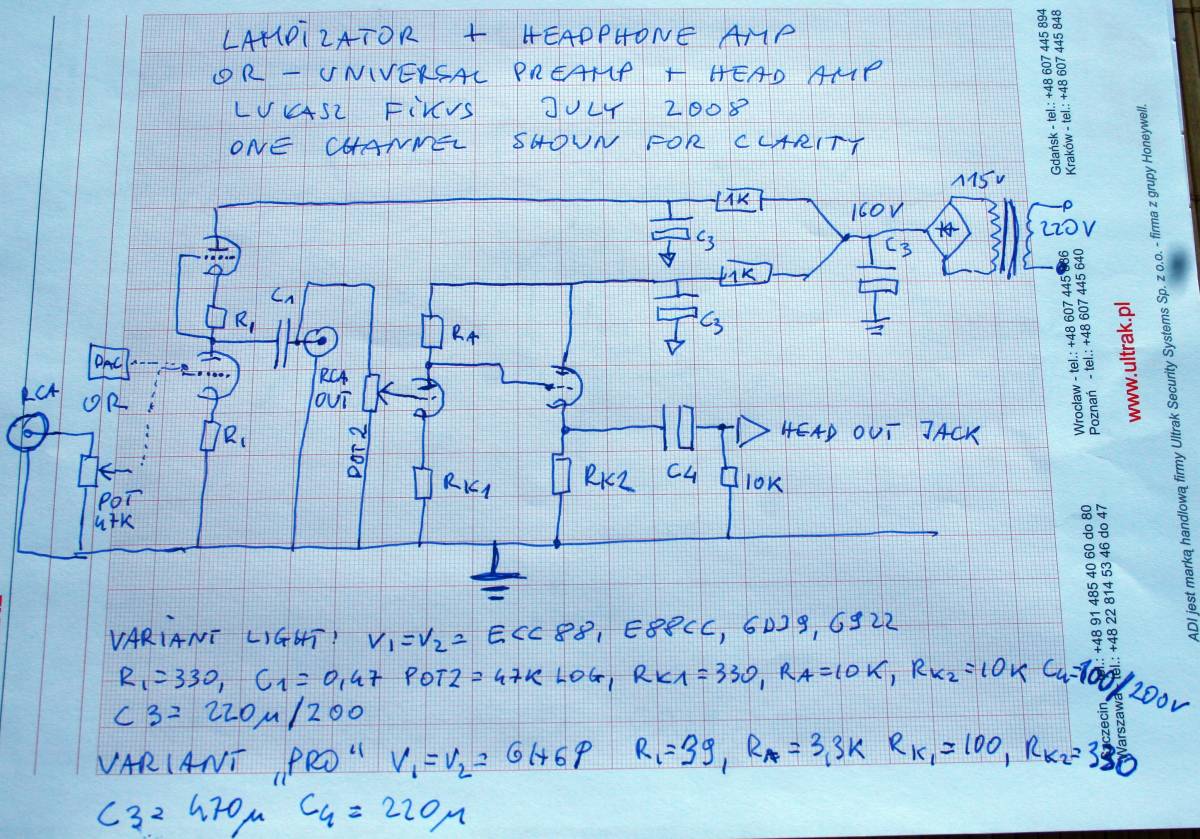 LAMPIZATOR + HEADPHONE AMP
OR - UNIVERSAL PREAMP + HEAD AMP
LUKASZ FIKUS JULY 2008
ONE CHANNEL SHOWN FOR CLARITY
115V
1K
160V
220V
C3
C3
1K
C3
C1
R1
RA
DAC
OR
RCA
RCA
OUT
R1
POT2
HEAD OUT JACK
C4
10K
RK1
RK2
POT
47K
VARIANT LIGHT! V1=V2= ECC88, E88CC, 6DJ9, 6922
R1=330, C1=0,47 POT2=47K LOG, RK1=330, RA=10K, RK2=10K C4=100/200V
C3= 220μ/200
VARIANT „PRO“ V1=V2= 6H6P R1=39, RA=3,3K RK1=100, RK2=330
C3= 470μ C4= 220μ
Gdańsk - tel.: +48 607 445 894
Kraków - tel.: +48 607 445 848
Wrocław - tel.: +48 607 445 886
Poznań - tel.: +48 607 445 640
Szczecin tel.: +48 91 485 40 60 do 80
Warszawa tel.: +48 22 814 53 46 do 47
www.ultrak.pl
ADI jest marką handlową firmy Ultrak Security Systems Sp. z o.o. - firma z grupy Honeywell.